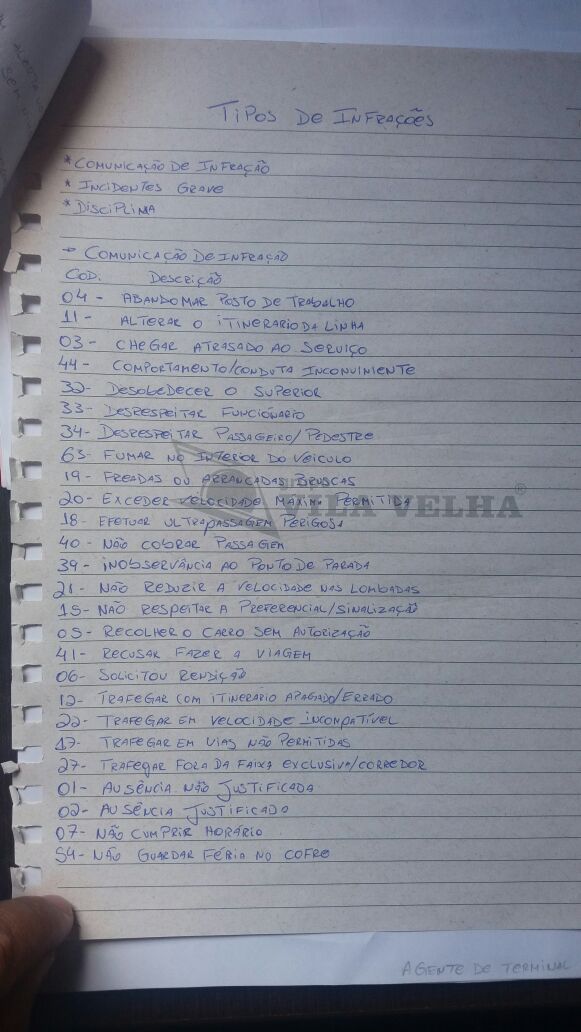 TIPOS DE INFRAÇÕES
* COMUNICAÇÃO DE INFRAÇÃO
* INCIDENTES GRAVE
* DISCIPLINA
→ COMUNICAÇÃO DE INFRAÇÃO
COD. DESCRIÇÃO
04 - ABANDOMAR POSTO DE TRABALHO
11 - ALTERAR O ITINERARIO DA LINHA
03 - CHEGAR ATRASADO AO SERVIÇO
44 - COMPORTAMENTO/CONDUTA INCONVINIENTE
32 - DESOBEDECER O SUPERIOR
33 - DESRESPEITAR FUNCIONÁRIO
34 - DESRESPEITAR PASSAGEIRO/PEDESTRE
63 - FUMAR NO INTERIOR DO VEÍCULO
19 - FREADAS OU ARRANCADAS BRUSCAS
20 - EXCEDER VELOCIDADE MAXIMA PERMITIDA
VILA VELHA®
18 - EFETUAR ULTRAPASSAGEM PERIGOSA
40 - NÃO COBRAR PASSAGEM
39 - INOBSERVÂNCIA AO PONTO DE PARADA
21 - NÃO REDUZIR A VELOCIDADE NAS LOMBADAS
15 - NÃO RESPEITAR A PREFERENCIAL/SINALIZAÇÃO
05 - RECOLHER O CARRO SEM AUTORIZAÇÃO
41 - RECUSAR FAZER A VIAGEM
06 - SOLICITOU RENDIÇÃO
12 - TRAFEGAR COM ITINERÁRIO APAGADO/ERRADO
22 - TRAFEGAR EM VELOCIDADE INCOMPATÍVEL
17 - TRAFEGAR EM VIAS NÃO PERMITIDAS
27 - TRAFEGAR FORA DA FAIXA EXCLUSIVA/CORREDOR
01 - AUSÊNCIA NÃO JUSTIFICADA
02 - AUSÊNCIA JUSTIFICADA
07 - NÃO CUMPRIR HORÁRIO
54 - NÃO GUARDAR FÉRIA NO COFRE
AGENTE DE TERMINAL